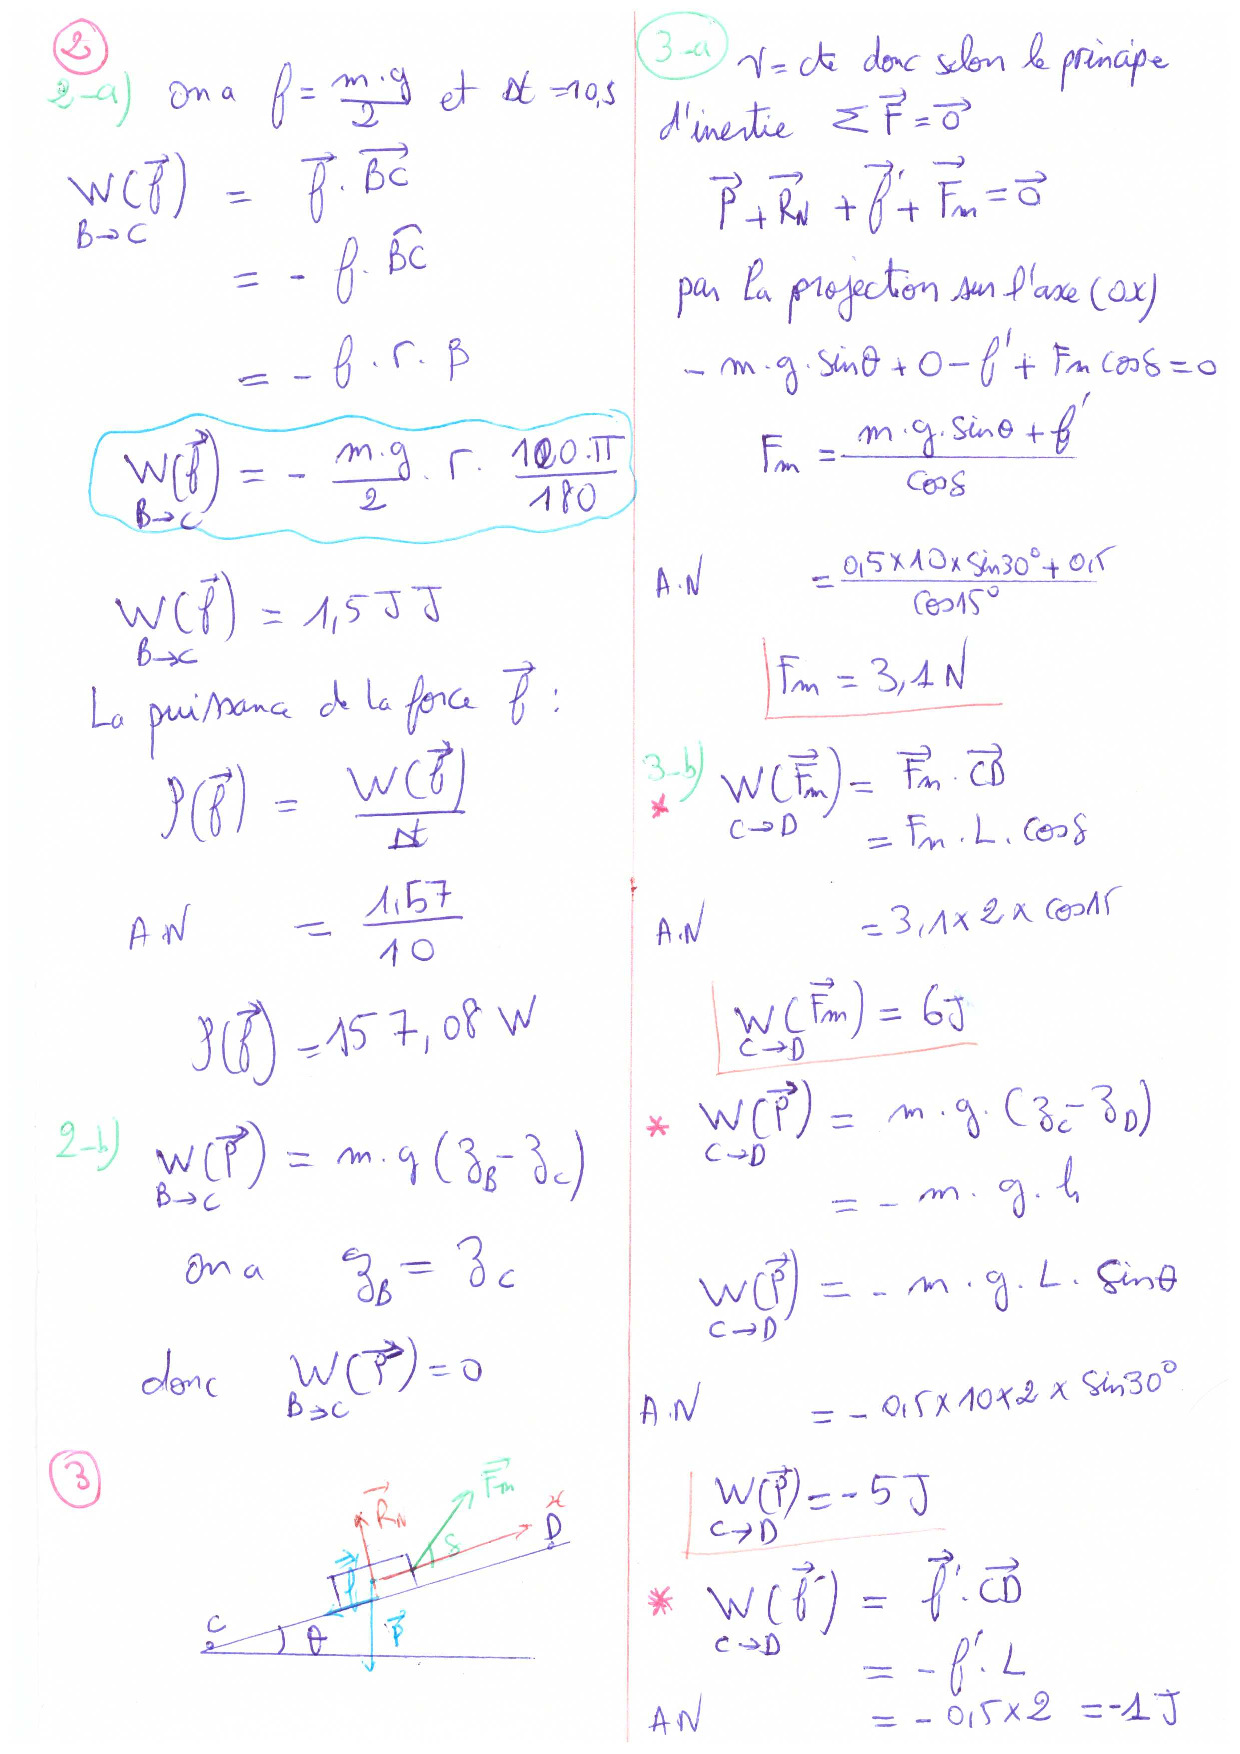 2
2-a) on a f = m.g/2 et Δt = 10,s
W(f⃗) B→C = f⃗ . BC⃗
= - f . BC
= - f . r . β
W(f⃗) B→C = - m.g/2 . r . 120.π/180
W(f⃗) B→C = 1,5 J J
La puissance de la force f⃗ :
P(f⃗) = W(f⃗)/Δt
A.N = 1,57/10
P(f⃗) = 157,08 W
2-b) W(P⃗) B→C = m.g (z_B - z_C)
on a z_B = z_C
donc W(P⃗) B→C = 0
3
R⃗_N F⃗m x D
f⃗ δ
C θ P⃗
3-a V = cte donc selon le principe
d'inertie Σ F⃗ = 0⃗
P⃗ + R⃗_N + f⃗' + F⃗m = 0⃗
par la projection sur l'axe (ox)
- m.g.sinθ + 0 - f' + Fm cosδ = 0
Fm = (m.g.sinθ + f')/cosδ
A.N = (0,5 x 10 x sin30° + 0,5)/cos15°
Fm = 3,1 N
3-b)
* W(F⃗m) C→D = F⃗m . CD⃗
= Fm . L . cosδ
A.N = 3,1 x 2 x cos15
W(F⃗m) C→D = 6J
* W(P⃗) C→D = m.g.(z_C - z_D)
= - m.g.h
W(P⃗) C→D = - m.g.L.sinθ
A.N = - 0,5 x 10 x 2 x sin30°
W(P⃗) C→D = - 5 J
* W(f⃗') C→D = f⃗' . CD⃗
= - f' . L
AN = - 0,5 x 2 = -1 J